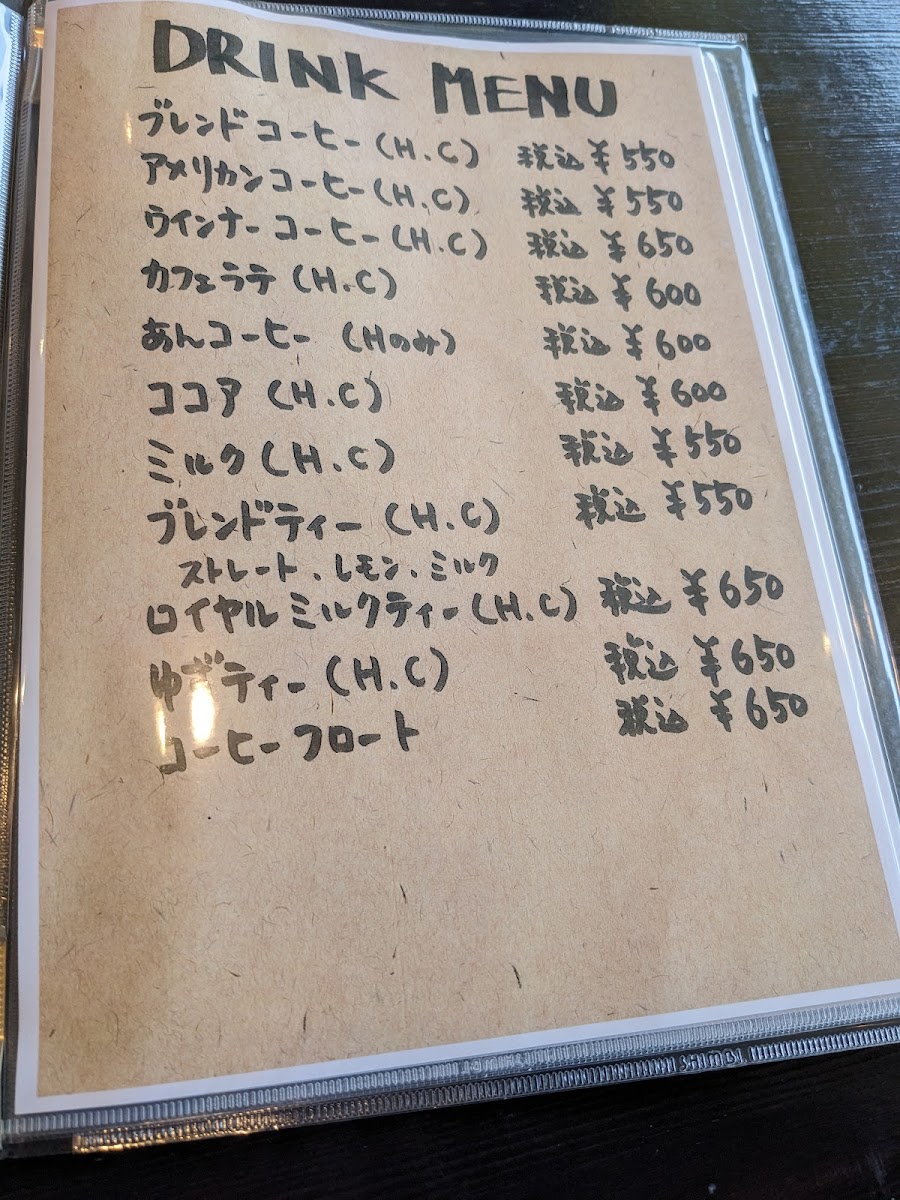 DRINK MENU
ブレンドコーヒー(H.C) 税込 ¥550
アメリカンコーヒー(H.C) 税込 ¥550
ウインナーコーヒー(H.C) 税込 ¥650
カフェラテ(H.C) 税込 ¥600
あんコーヒー (Hのみ) 税込 ¥600
ココア(H.C) 税込 ¥600
ミルク(H.C) 税込 ¥550
ブレンドティー(H.C) 税込 ¥550
ストレート、レモン、ミルク
ロイヤルミルクティー(H.C) 税込 ¥650
ゆずティー(H.C) 税込 ¥650
コーヒーフロート 税込 ¥650